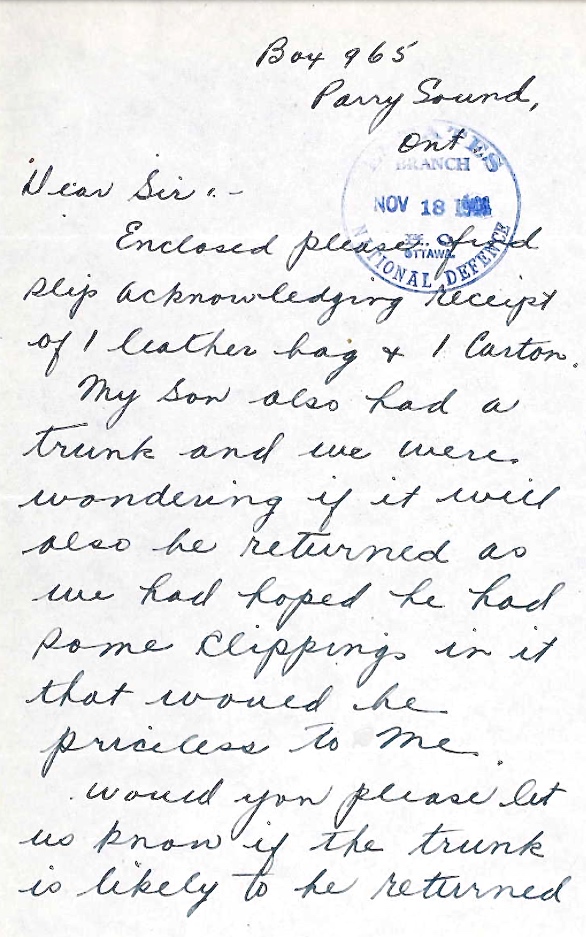 Box 965
Parry Sound,
Ont
ESTATES
BRANCH
NOV 18
OTTAWA
NATIONAL DEFENCE
Dear Sir:-
Enclosed please find
slip acknowledging receipt
of 1 leather bag & 1 Carton.
My Son also had a
trunk and we were
wondering if it will
also be returned as
we had hoped he had
some clippings in it
that would be
priceless to Me.
would you please let
us know if the trunk
is likely to be returned